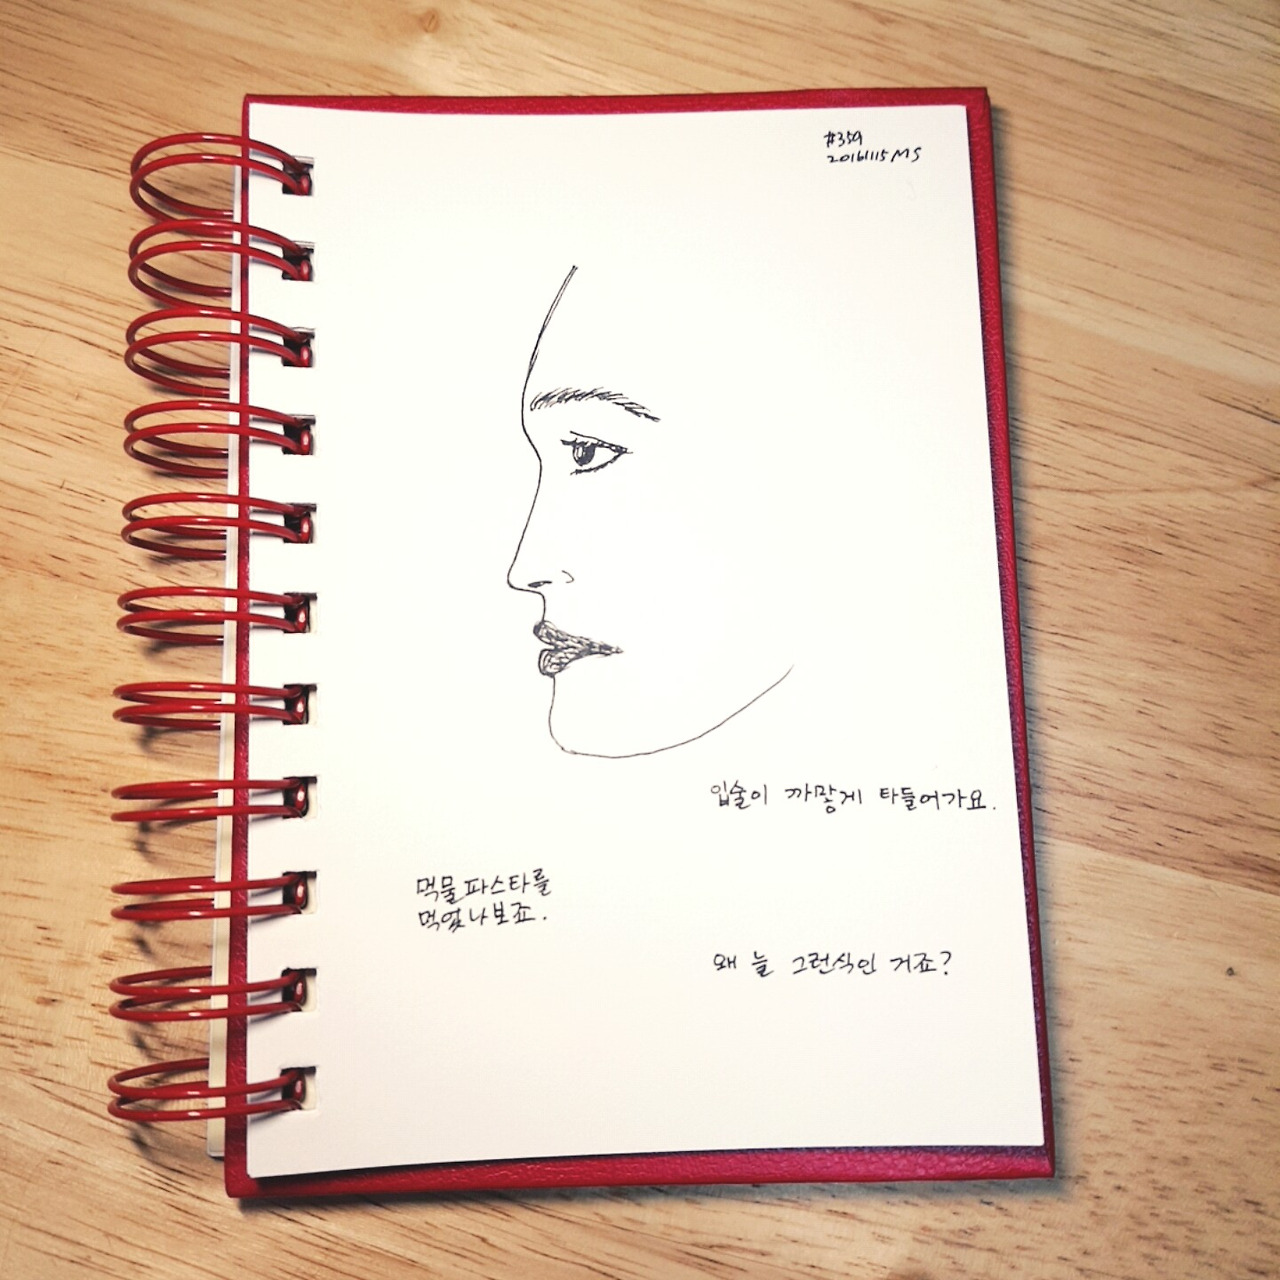 #359
20161115 MS
입술이 까맣게 타들어가요.
먹물파스타를
먹었나보죠.
왜 늘 그런식인 거죠?